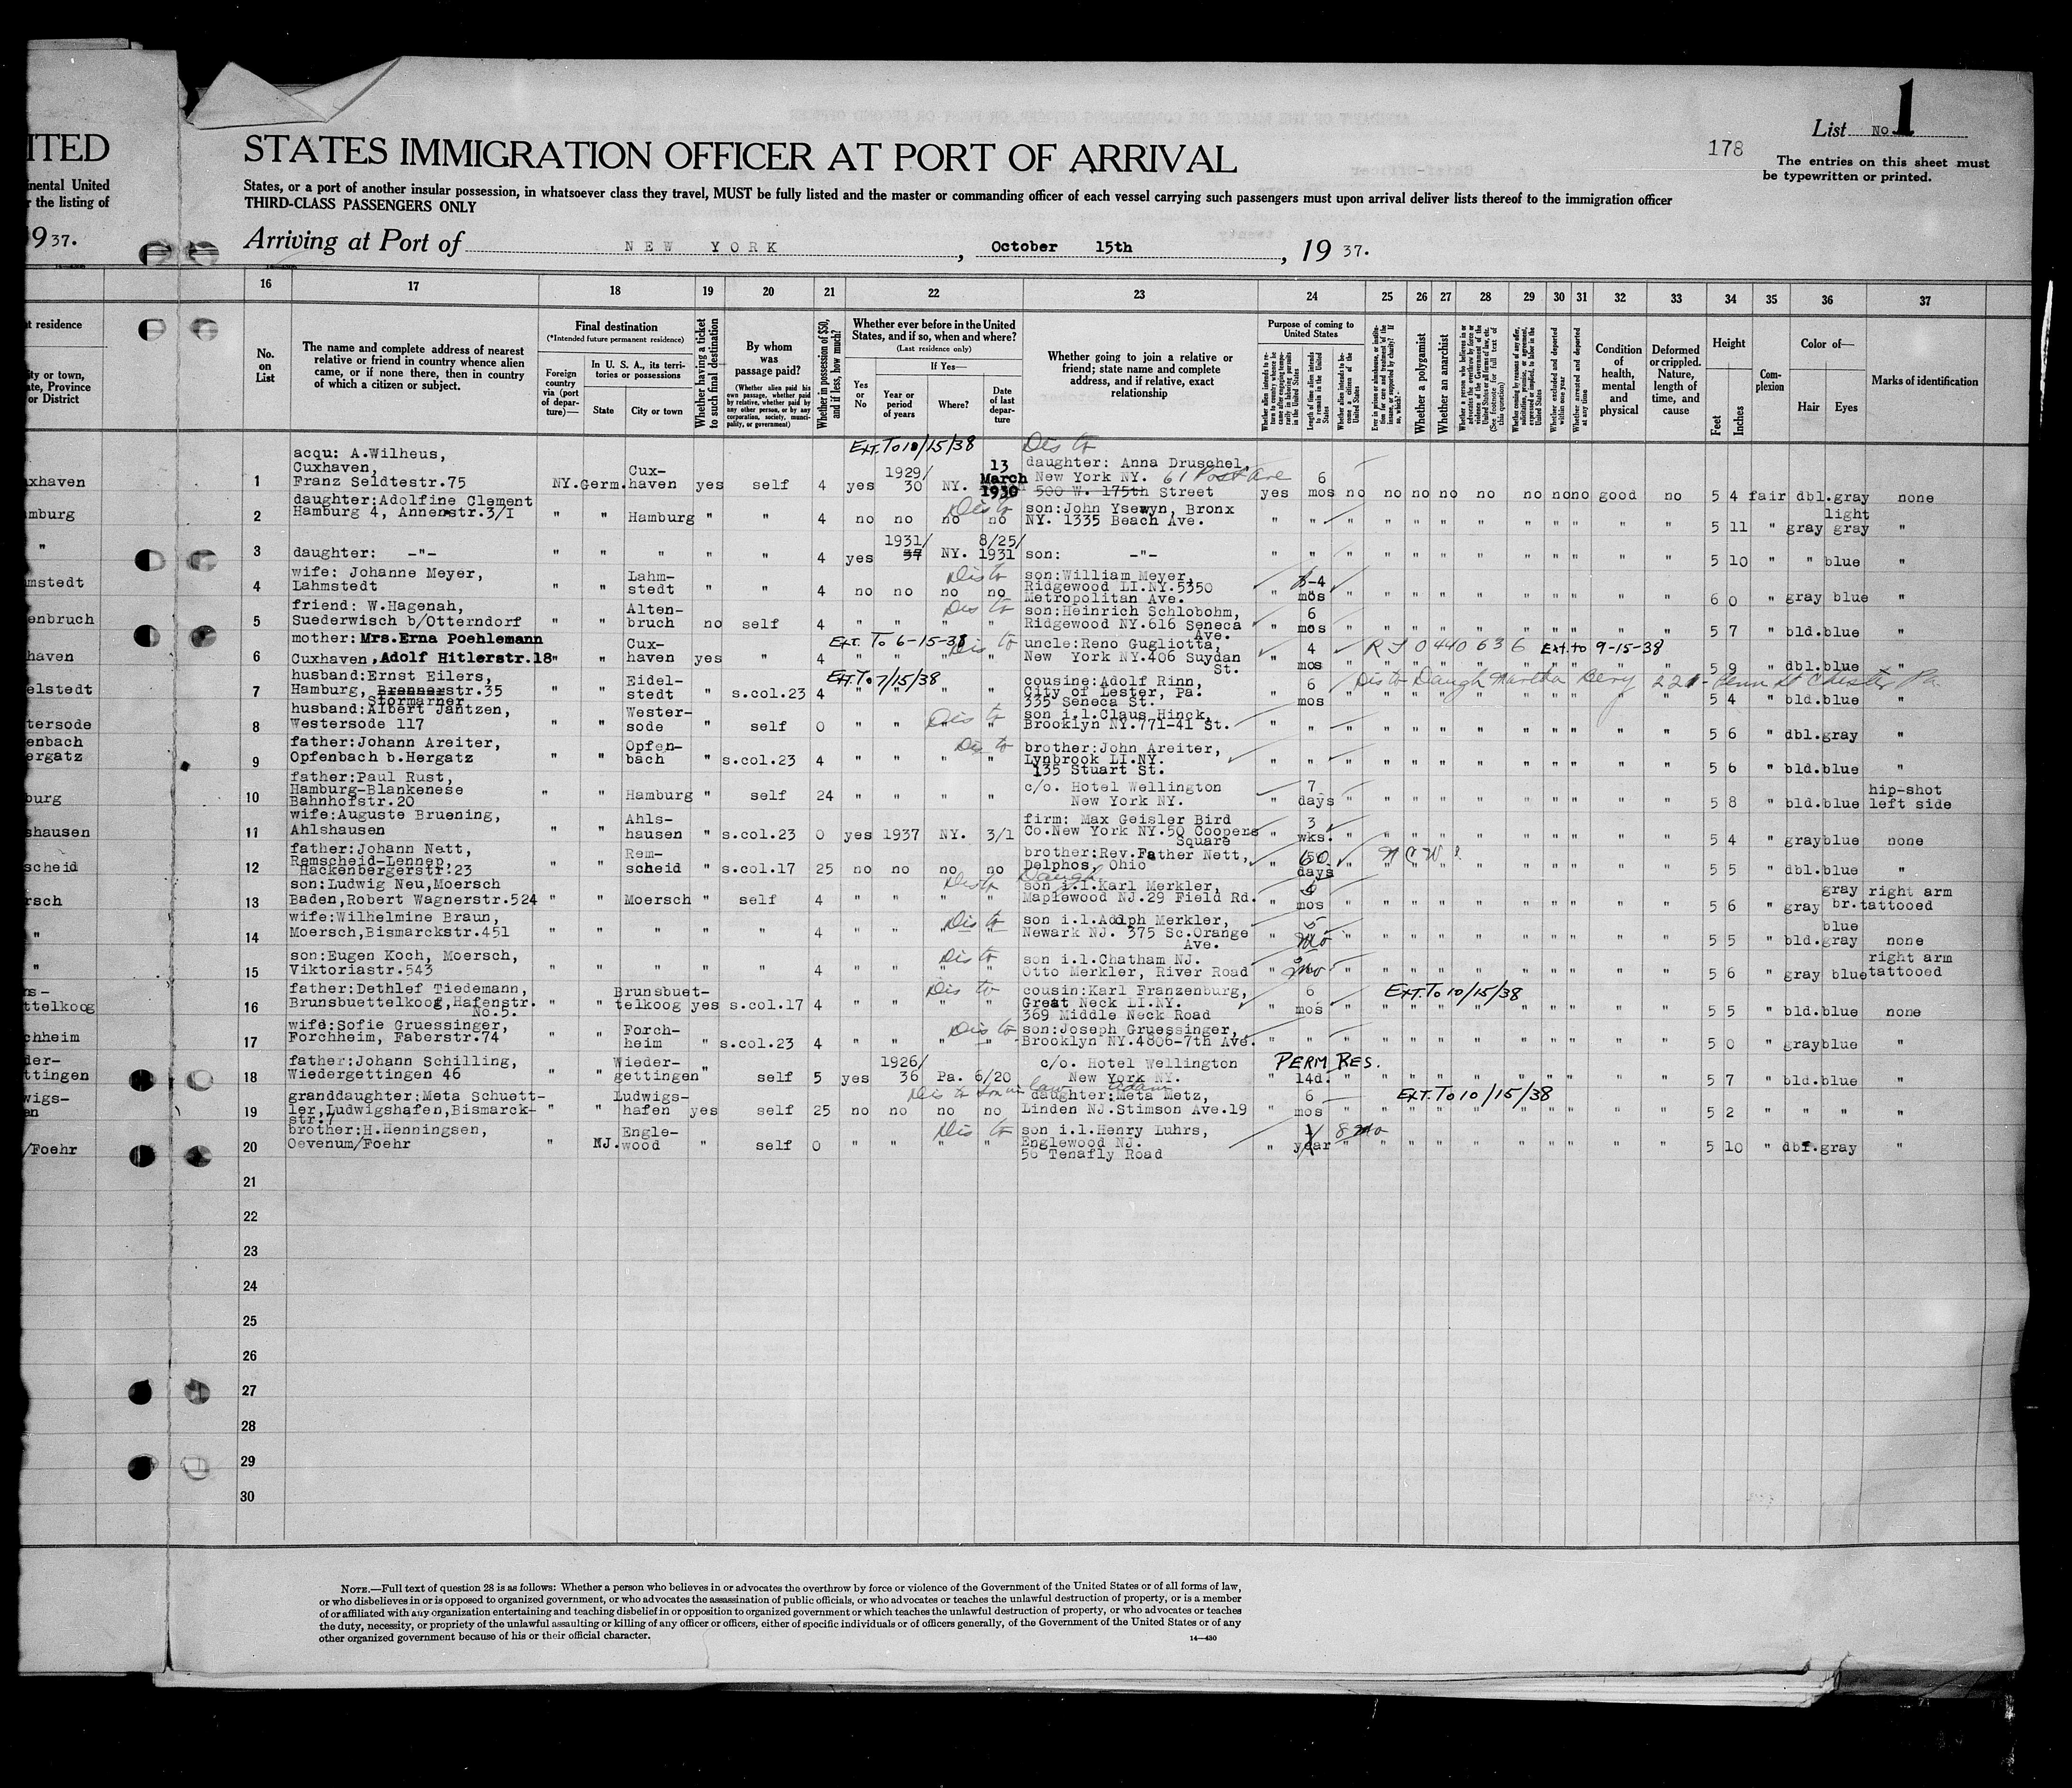 List No 1
178
ITED
STATES IMMIGRATION OFFICER AT PORT OF ARRIVAL
The entries on this sheet must
be typewritten or printed.
inental United
r the listing of
States, or a port of another insular possession, in whatsoever class they travel, MUST be fully listed and the master or commanding officer of each vessel carrying such passengers must upon arrival deliver lists thereof to the immigration officer
THIRD-CLASS PASSENGERS ONLY
937.
Arriving at Port of NEW YORK, October 15th, 1937.
16 17 18 19 20 21 22 23 24 25 26 27 28 29 30 31 32 33 34 35 36 37
t residence
ity or town,
ate, Province
or District
No. on List
The name and complete address of nearest
relative or friend in country whence alien
came, or if none there, then in country
of which a citizen or subject.
Final destination
(*Intended future permanent residence)
Foreign country via (port of departure)—
In U. S. A., its territories or possessions
State
City or town
Whether having a ticket to such final destination
By whom was passage paid?
(Whether alien paid his own passage, whether paid by relative, whether paid by any other person, or by any corporation, society, municipality, or government)
Whether in possession of $50, and if less, how much?
Whether ever before in the United
States, and if so, when and where?
(Last residence only)
Yes or No
If Yes—
Year or period of years
Where?
Date of last departure
Whether going to join a relative or
friend; state name and complete
address, and if relative, exact
relationship
Purpose of coming to United States
Length of time alien intends to remain in the United States
Whether alien intends to become a citizen of the United States
Whether a polygamist
Whether an anarchist
Whether excluded and deported within one year
Whether arrested and deported at any time
Condition of health, mental and physical
Deformed or crippled. Nature, length of time, and cause
Height
Feet
Inches
Complexion
Color of—
Hair Eyes
Marks of identification
Ext. To 10/15/38 Dis to
acqu: A.Wilheus,
Cuxhaven,
xhaven 1 Franz Seldtestr.75 NY. Germ. Cux-haven yes self 4 yes 1929/30 NY. 13 March 1930 daughter: Anna Druschel, New York NY. 61 Post Ave 500 W. 175th Street yes 6 mos no no no no no no no no good no 5 4 fair dbl. gray none
daughter:Adolfine Clement
mburg 2 Hamburg 4, Annenstr.3/I " " Hamburg " " 4 no no no no Dis to son:John Ysewyn, Bronx NY. 1335 Beach Ave. " " " " " " " " " " " " " 5 11 " gray light gray "
" 3 daughter: -"- " " " " " 4 yes 1931/37 NY. 8/25/1931 son: -"- " " " " " " " " " " " " " 5 10 " " blue "
wife: Johanne Meyer,
mstedt 4 Lahmstedt " " Lahm-stedt " " 4 no no no no Dis to son:William Meyer, Ridgewood LI.NY.5350 Metropolitan Ave. " 6-4 mos " " " " " " " " " " " 6 0 " gray blue "
friend: W.Hagenah,
enbruch 5 Suederwisch b/Otterndorf " " Alten-bruch no self 4 " " " " Dis to son:Heinrich Schlobohm, Ridgewood NY.616 Seneca Ave. " 6 mos " " " " " " " " " " " 5 7 " bld. blue "
mother: Mrs.Erna Poehlemann
haven 6 Cuxhaven, Adolf Hitlerstr.18 " " Cux-haven yes " 4 Ext. To 6-15-38 " " " " Dis to uncle:Reno Gugliotta, New York NY.406 Suydan St. " 4 mos R J 0440636 Ext to 9-15-38 " " " " " " " " " " " 5 9 " dbl. blue "
husband:Ernst Eilers,
elstedt 7 Hamburg, Brennerstr.35 Stormarner " " Eidel-stedt " s.col.23 4 Ext. To 7/15/38 " " " " cousine:Adolf Rinn, City of Lester, Pa. 335 Seneca St. 6 mos Dis to Daugh Martha Berg 221- Penn St Chester Pa. " " " " " " " " " " " 5 4 " bld. blue "
husband:Albert Jantzen,
tersode 8 Westersode 117 " " Wester-sode " self 0 " " " " Dis to son i.l.Claus Hinck, Brooklyn NY.771-41 St. " " " " " " " " " " " " " 5 6 " dbl. gray "
enbach
ergatz
father:Johann Areiter,
9 Opfenbach b.Hergatz " " Opfen-bach " s.col.23 4 " " " " Dis to brother:John Areiter, Lynbrook LI.NY. 135 Stuart St. " " " " " " " " " " " " " 5 6 " bld. blue "
father:Paul Rust,
Hamburg-Blankenese
burg 10 Bahnhofstr.20 " " Hamburg " self 24 " " " " c/o. Hotel Wellington New York NY. " 7 days " " " " " " " " " " " 5 8 " bld. blue hip-shot left side
wife:Auguste Bruening,
shausen 11 Ahlshausen " " Ahls-hausen " s.col.23 0 yes 1937 NY. 3/1 firm: Max Geisler Bird Co.New York NY.50 Coopers Square " 3 wks. " " " " " " " " " " " 5 4 " gray blue none
father:Johann Nett,
Remscheid-Lennep,
scheid 12 Hackenbergerstr.23 " " Rem-scheid " s.col.17 25 no no no no brother:Rev.Father Nett, Delphos, Ohio " 60 days N C W " " " " " " " " " " " 5 5 " dbl. blue "
son:Ludwig Neu,Moersch
rsch 13 Baden,Robert Wagnerstr.524 " " Moersch " self 4 " " " " Dis to Daugh son i.l.Karl Merkler, Maplewood NJ.29 Field Rd. " mos " " " " " " " " " " " 5 6 " gray gray br. right arm tattooed
wife:Wilhelmine Braun,
" 14 Moersch,Bismarckstr.451 " " " " " 4 " " " " Dis to son i.l.Adolph Merkler, Newark NJ. 375 So.Orange Ave. " 5 mo " " " " " " " " " " " 5 5 " bld. blue gray none
son:Eugen Koch, Moersch,
" 15 Viktoriastr.543 " " " " " 4 " " " " Dis to son i.l.Chatham NJ. Otto Merkler, River Road " mo " " " " " " " " " " " 5 6 " gray blue right arm tattooed
ns-
ttelkoog
father:Dethlef Tiedemann,
16 Brunsbuettelkoog,Hafenstr. No.5. " " Brunsbuet-telkoog yes s.col.17 4 " " " " Dis to cousin:Karl Franzenburg, Great Neck LI.NY. 369 Middle Neck Road " 6 mos Ext. To 10/15/38 " " " " " " " " " " " 5 5 " bld. blue none
wife:Sofie Gruessinger,
chheim 17 Forchheim, Faberstr.74 " " Forch-heim " s.col.23 4 " " " " Dis to son:Joseph Gruessinger, Brooklyn NY.4806-7th Ave. " " " " " " " " " " " " " 5 0 " gray blue "
der-
ttingen
father:Johann Schilling,
18 Wiedergettingen 46 " " Wieder-gettingen " self 5 yes 1926/36 Pa. 6/20 c/o. Hotel Wellington New York NY. PERM RES. " 14d. " " " " " " " " " " " 5 7 " bld. blue "
wigs-
en
granddaughter:Meta Schuett-
19 ler,Ludwigshafen,Bismarck-str.7 " " Ludwigs-hafen yes self 25 no no no no Dis to son in law Adam daughter:Meta Metz, Linden NJ.Stimson Ave.19 " 6 mos Ext. To 10/15/38 " " " " " " " " " " " 5 2 " " " "
brother:H.Henningsen,
/Foehr 20 Oevenum/Foehr " NJ. Engle-wood " self 0 " " " " Dis to son i.l.Henry Luhrs, Englewood NJ. 56 Tenafly Road " 1 year 8 mo " " " " " " " " " " " 5 10 " dbf. gray "
21
22
23
24
25
26
27
28
29
30
NOTE.—Full text of question 28 is as follows: Whether a person who believes in or advocates the overthrow by force or violence of the Government of the United States or of all forms of law,
or who disbelieves in or is opposed to organized government, or who advocates the assassination of public officials, or who advocates or teaches the unlawful destruction of property, or is a member
of or affiliated with any organization entertaining and teaching disbelief in or opposition to organized government or which teaches the unlawful destruction of property, or who advocates or teaches
the duty, necessity, or propriety of the unlawful assaulting or killing of any officer or officers, either of specific individuals or of officers generally, of the Government of the United States or of any
other organized government because of his or their official character.
14—430